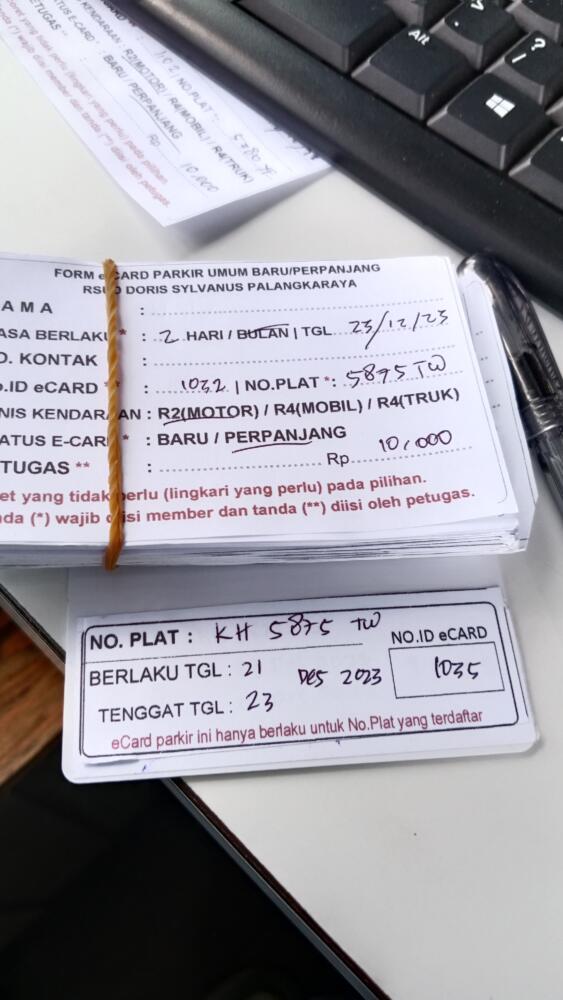 US E-CARD
KENDARAAN : R2(MOTOR) / R4(MOBIL) / R4(TRUK)
NO.PLAT * : 5780
BARU / PERPANJANG
Rp. 10,000
(lingkari yang perlu) pada pilihan.
tanda (*) wajib diisi member dan tanda (**) diisi oleh petugas.
Alt
?
/
FORM eCARD PARKIR UMUM BARU/PERPANJANG
RSUD DORIS SYLVANUS PALANGKARAYA
AMA :
ASA BERLAKU * : 2 HARI / BULAN | TGL 23/12/23
O. KONTAK :
.ID eCARD * : 1032 | NO.PLAT * : 5875 TW
NIS KENDARAAN : R2(MOTOR) / R4(MOBIL) / R4(TRUK)
ATUS E-CARD * : BARU / PERPANJANG
TUGAS ** : Rp 10,000
et yang tidak perlu (lingkari yang perlu) pada pilihan.
da (*) wajib diisi member dan tanda (**) diisi oleh petugas.
NO. PLAT : KH 5875 TW
NO.ID eCARD
BERLAKU TGL : 21 DES 2023
1035
TENGGAT TGL : 23
eCard parkir ini hanya berlaku untuk No.Plat yang terdaftar